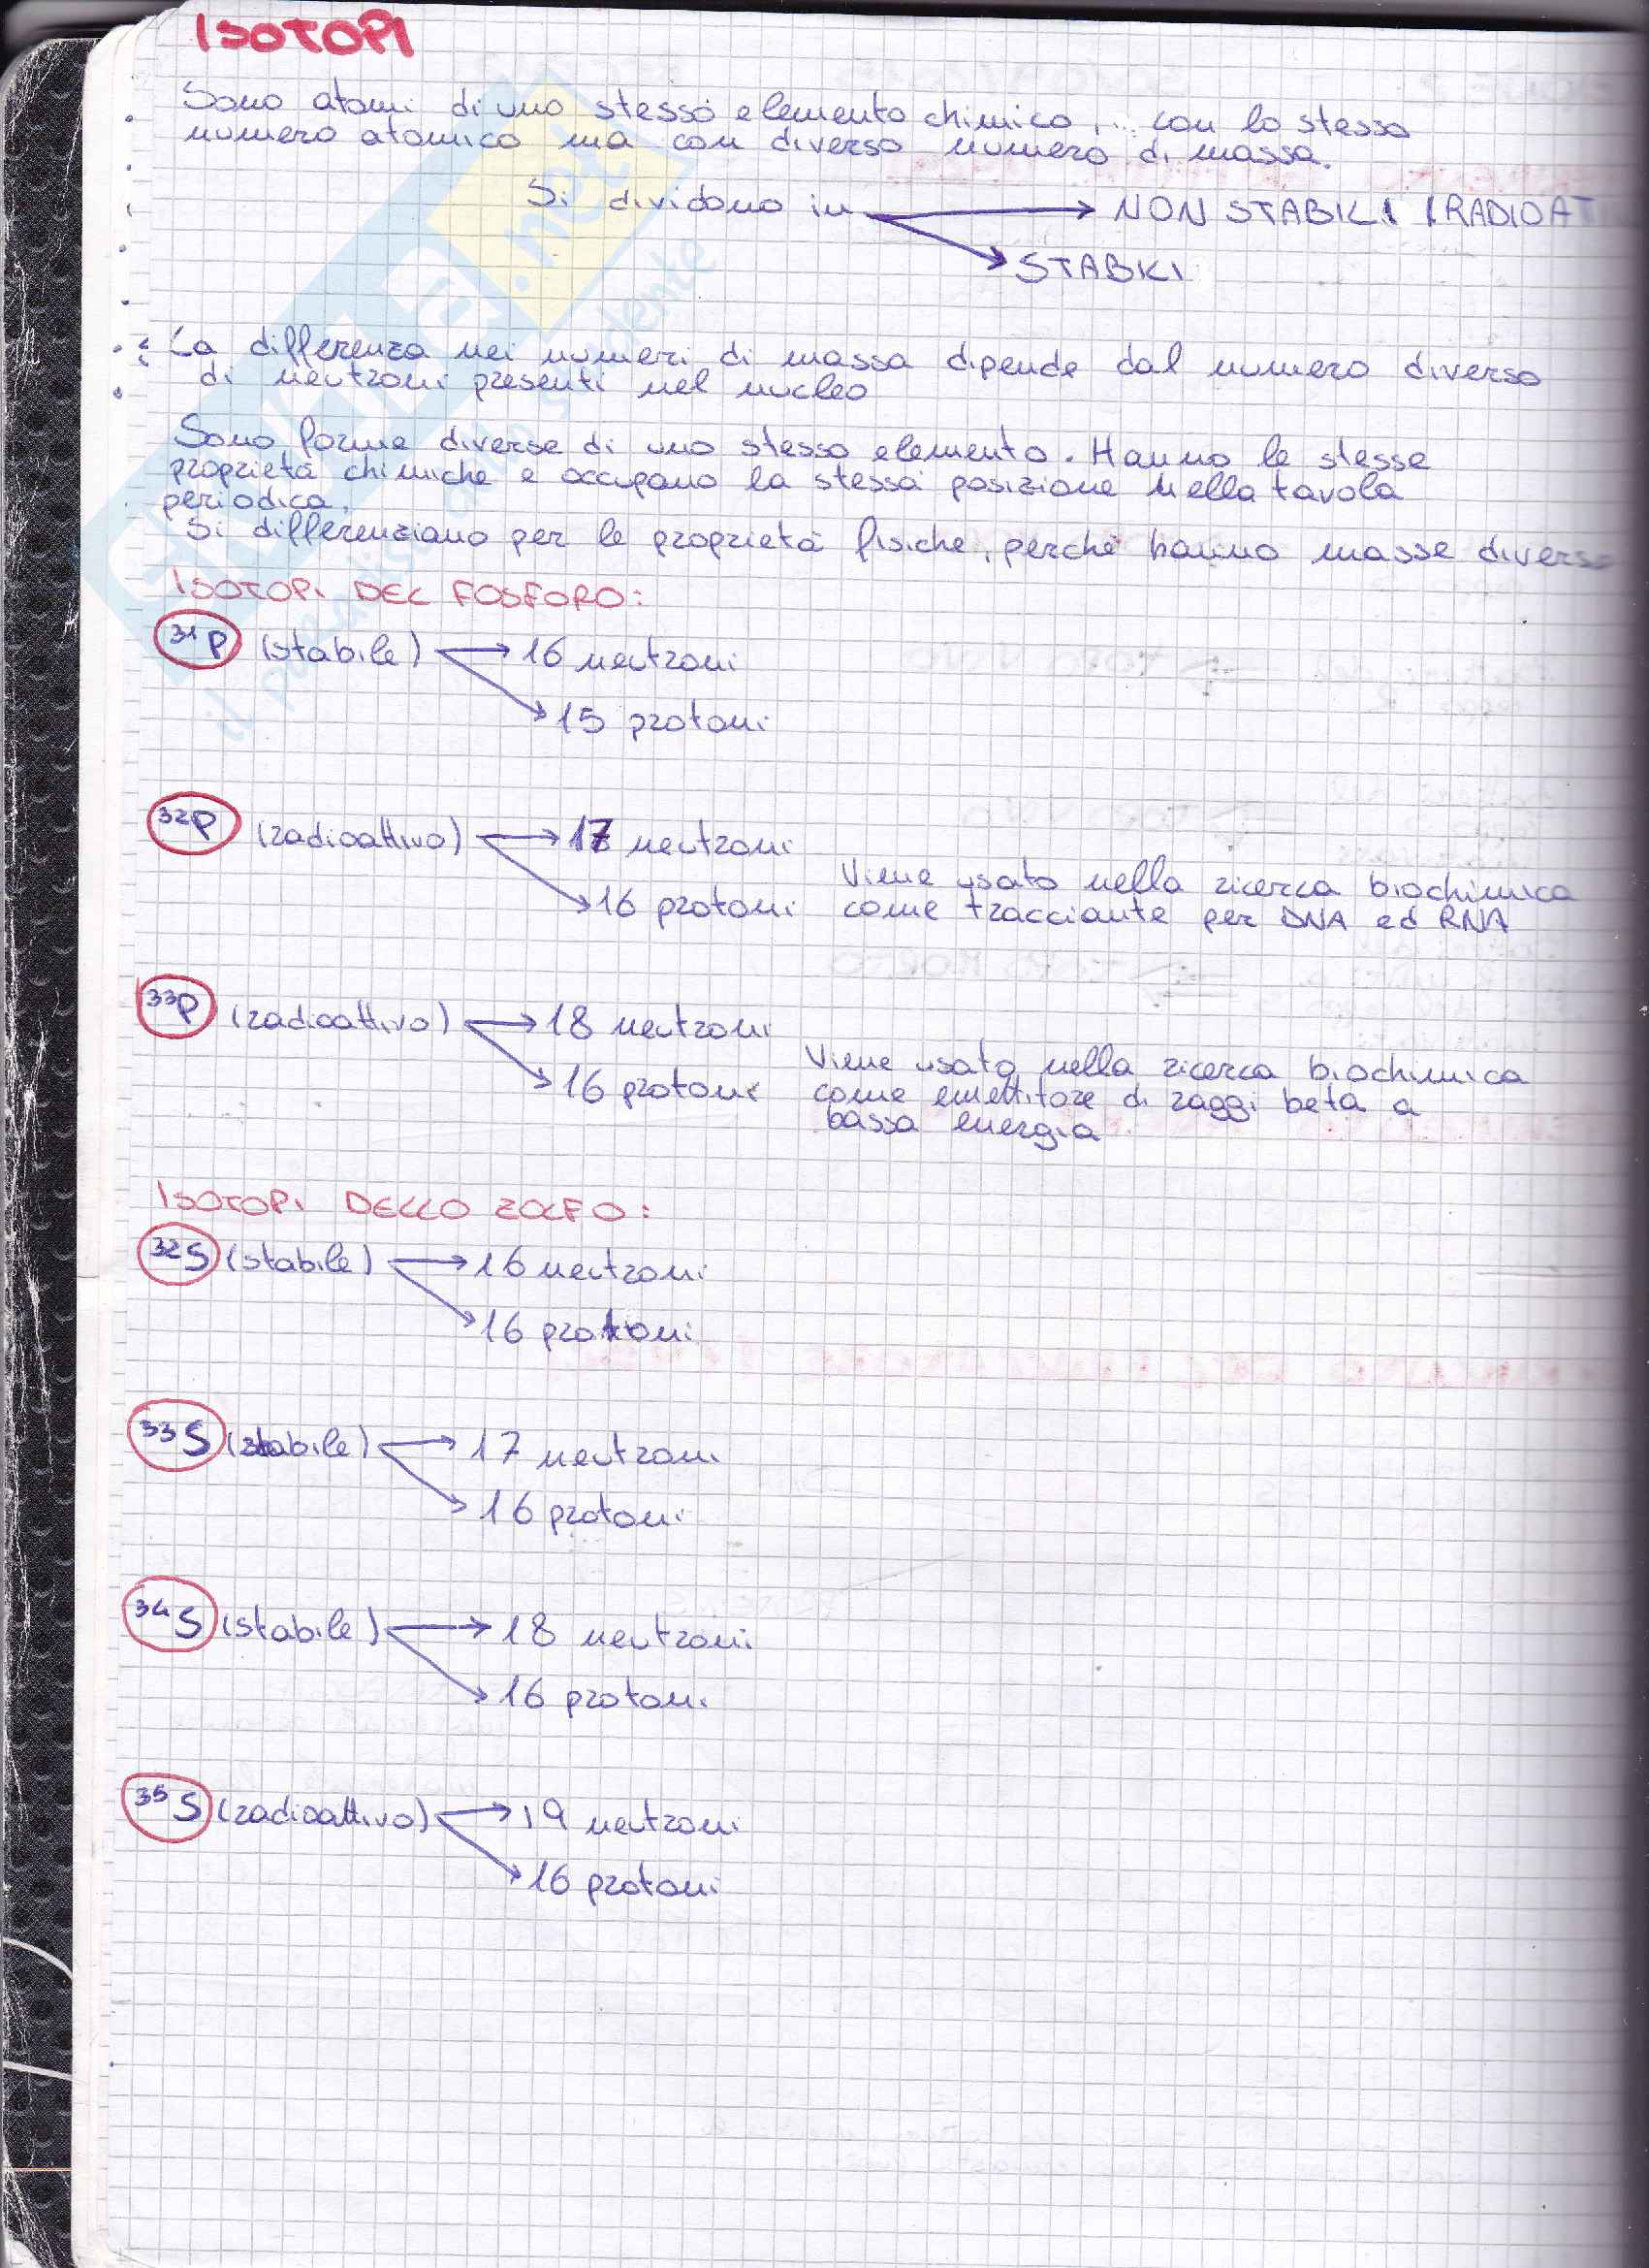 ISOTOPI
Sono atomi di uno stesso elemento chimico, con lo stesso
numero atomico ma con diverso numero di massa.
Si dividono in → NON STABILI (RADIOAT
→ STABILI
La differenza nei numeri di massa dipende dal numero diverso
di neutroni presenti nel nucleo
Sono forme diverse di uno stesso elemento. Hanno le stesse
proprietà chimiche e occupano la stessa posizione nella tavola
periodica.
Si differenziano per le proprietà fisiche, perché hanno masse diverse
ISOTOPI DEL FOSFORO:
³¹P (stabile) → 16 neutroni
→ 15 protoni
³²P (radioattivo) → 17 neutroni
→ 16 protoni
Viene usato nella ricerca biochimica
come tracciante per DNA ed RNA
³³P (radioattivo) → 18 neutroni
→ 16 protoni
Viene usato nella ricerca biochimica
come emettitore di raggi beta a
bassa energia
ISOTOPI DELLO ZOLFO:
³²S (stabile) → 16 neutroni
→ 16 protoni
³³S (stabile) → 17 neutroni
→ 16 protoni
³⁴S (stabile) → 18 neutroni
→ 16 protoni
³⁵S (radioattivo) → 19 neutroni
→ 16 protoni